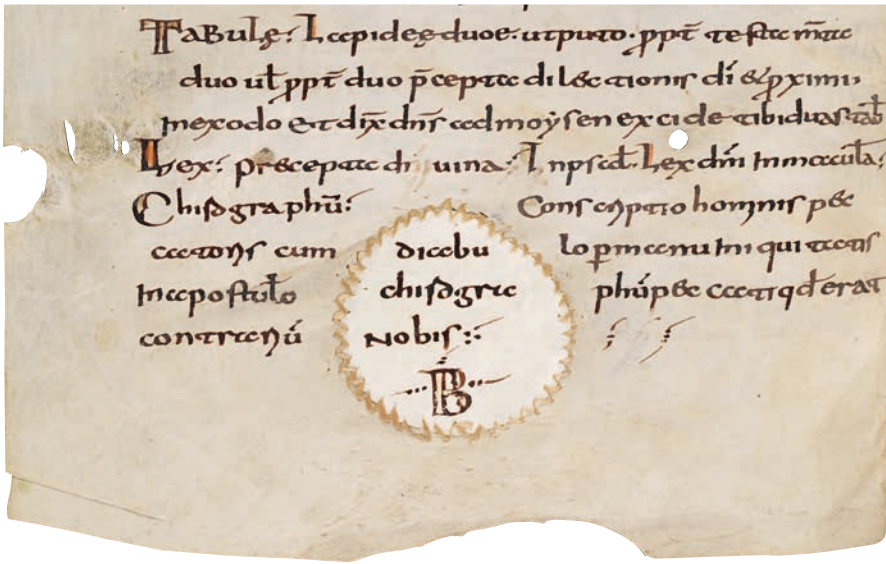 Tabulę: Lapideę duae: ut puto. ꝓpt̄ testam̄ta
duo ul̄ ꝓpt̄ duo p̄cepta dilectionis dī & ꝓximi,
In exodo & dix̄ dn̄s ad moysen excide tibi duas tab̄
Lex: precepta diuina: In psal̄. Lex dn̄i Inmacul̄a:
Chirographū: Conscriptio hominis pec
catoris cum diabulo ꝑ manu Iniquitatis
In apostul̄o chirographū peccati qd̄ erat
contrariū nobis:
B